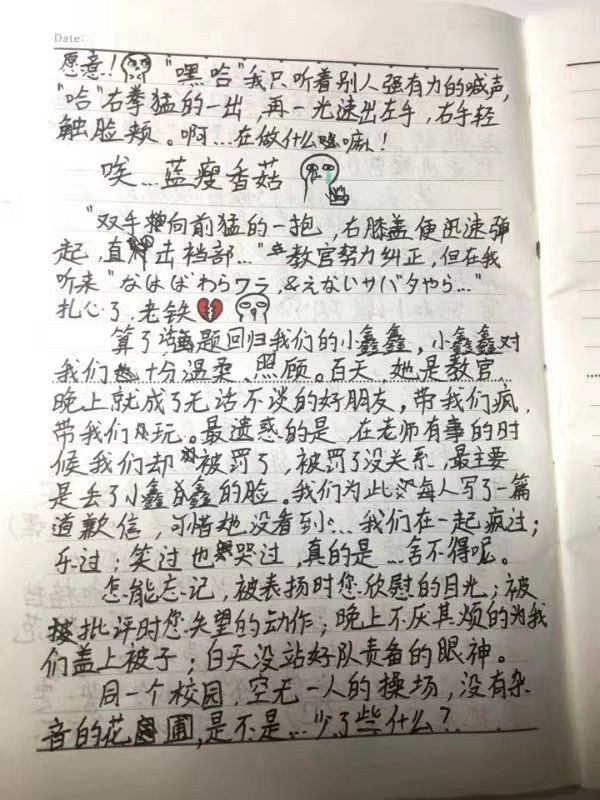 Date:
愿意！"嘿哈"我只听着别人强有力的喊声,
"哈"右拳猛的一出，再一光速出左手，右手轻
触脸颊。啊…在做什么嘞！
唉…蓝瘦香菇
"双手向前猛的一抱，右膝盖便迅速弹
起，直击裆部…"教官努力纠正，但在我
听来"なはばわらワラ,&えないサバタやら…"
扎心了，老铁
算了话题回归我们的小鑫鑫，小鑫鑫对
我们十分温柔、照顾。百天，她是教官，
晚上就成了无话不谈的好朋友，带我们疯，
带我们玩。最遗惑的是，在老师有事的时
候我们却被罚了，被罚了没关系，最主要
是丢了小鑫鑫的脸。我们为此每人写了一篇
道歉信，可惜她没看到…我们在一起疯过；
乐过；笑过也哭过，真的是…舍不得呢。
怎能忘记，被表扬时您欣慰的目光；被
批评时您失望的动作；晚上不厌其烦的为我
们盖上被子；白天没站好队责备的眼神。
同一个校园，空无一人的操场，没有杂
音的花圃，是不是…少了些什么？